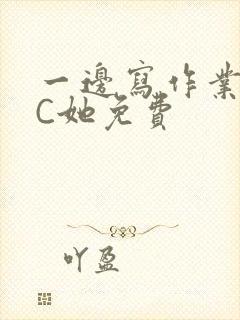 一邊寫作業
C她免費
吖盈